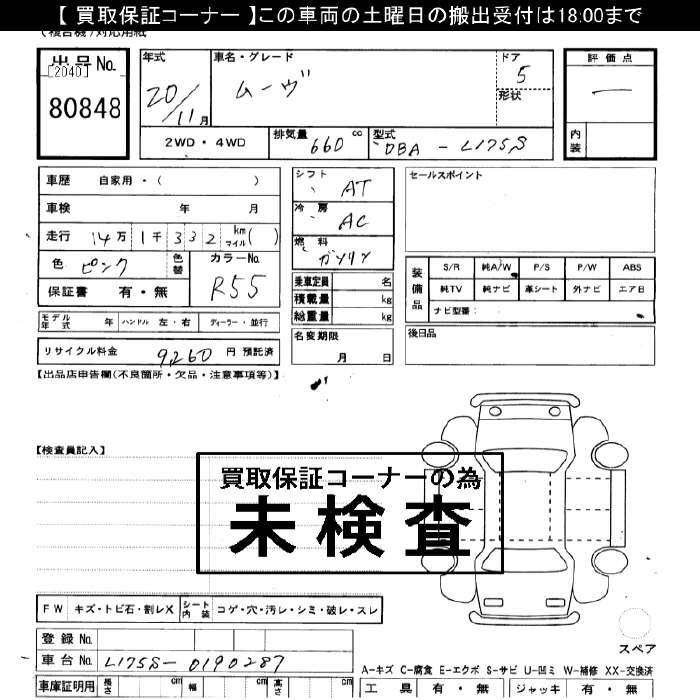 【 買取保証コーナー 】この車両の土曜日の搬出受付は18:00まで
(複合機)対応用紙
出品No.
[2040]
80848
年式
20/11月
車名・グレード
ムーヴ
ドア
5
形状
評価点
内装
2WD・4WD
排気量 660 cc
型式 DBA - L175S
車歴 自家用・( )
車検 年 月
走行 14万1千332 km マイル( )
色 ピンク
色替
カラーNo.
R55
保証書 有・無
シフト AT
冷房 AC
燃料 ガソリン
乗車定員 名
積載量 kg
総重量 kg
セールスポイント
装備品
S/R 純A/W P/S P/W ABS
純TV 純ナビ 革シート 外ナビ エアB
ナビ型番:
モデル年式 年 ハンドル 左・右 ディーラー・並行
名変期限
月 日
後日品
リサイクル料金 9,260 円 預託済
【出品店申告欄(不良箇所・欠品・注意事項等)】
【検査員記入】
買取保証コーナーの為
未検査
FW キズ・トビ石・割レX
シート内装 コゲ・穴・汚レ・シミ・破レ・スレ
登録No.
車台No. L175S-0190287
車庫証明用 長さ cm 幅 cm 高さ cm
スペア
A-キズ C-腐食 E-エクボ S-サビ U-凹ミ W-補修 XX-交換済
工具 有・無 ジャッキ 有・無